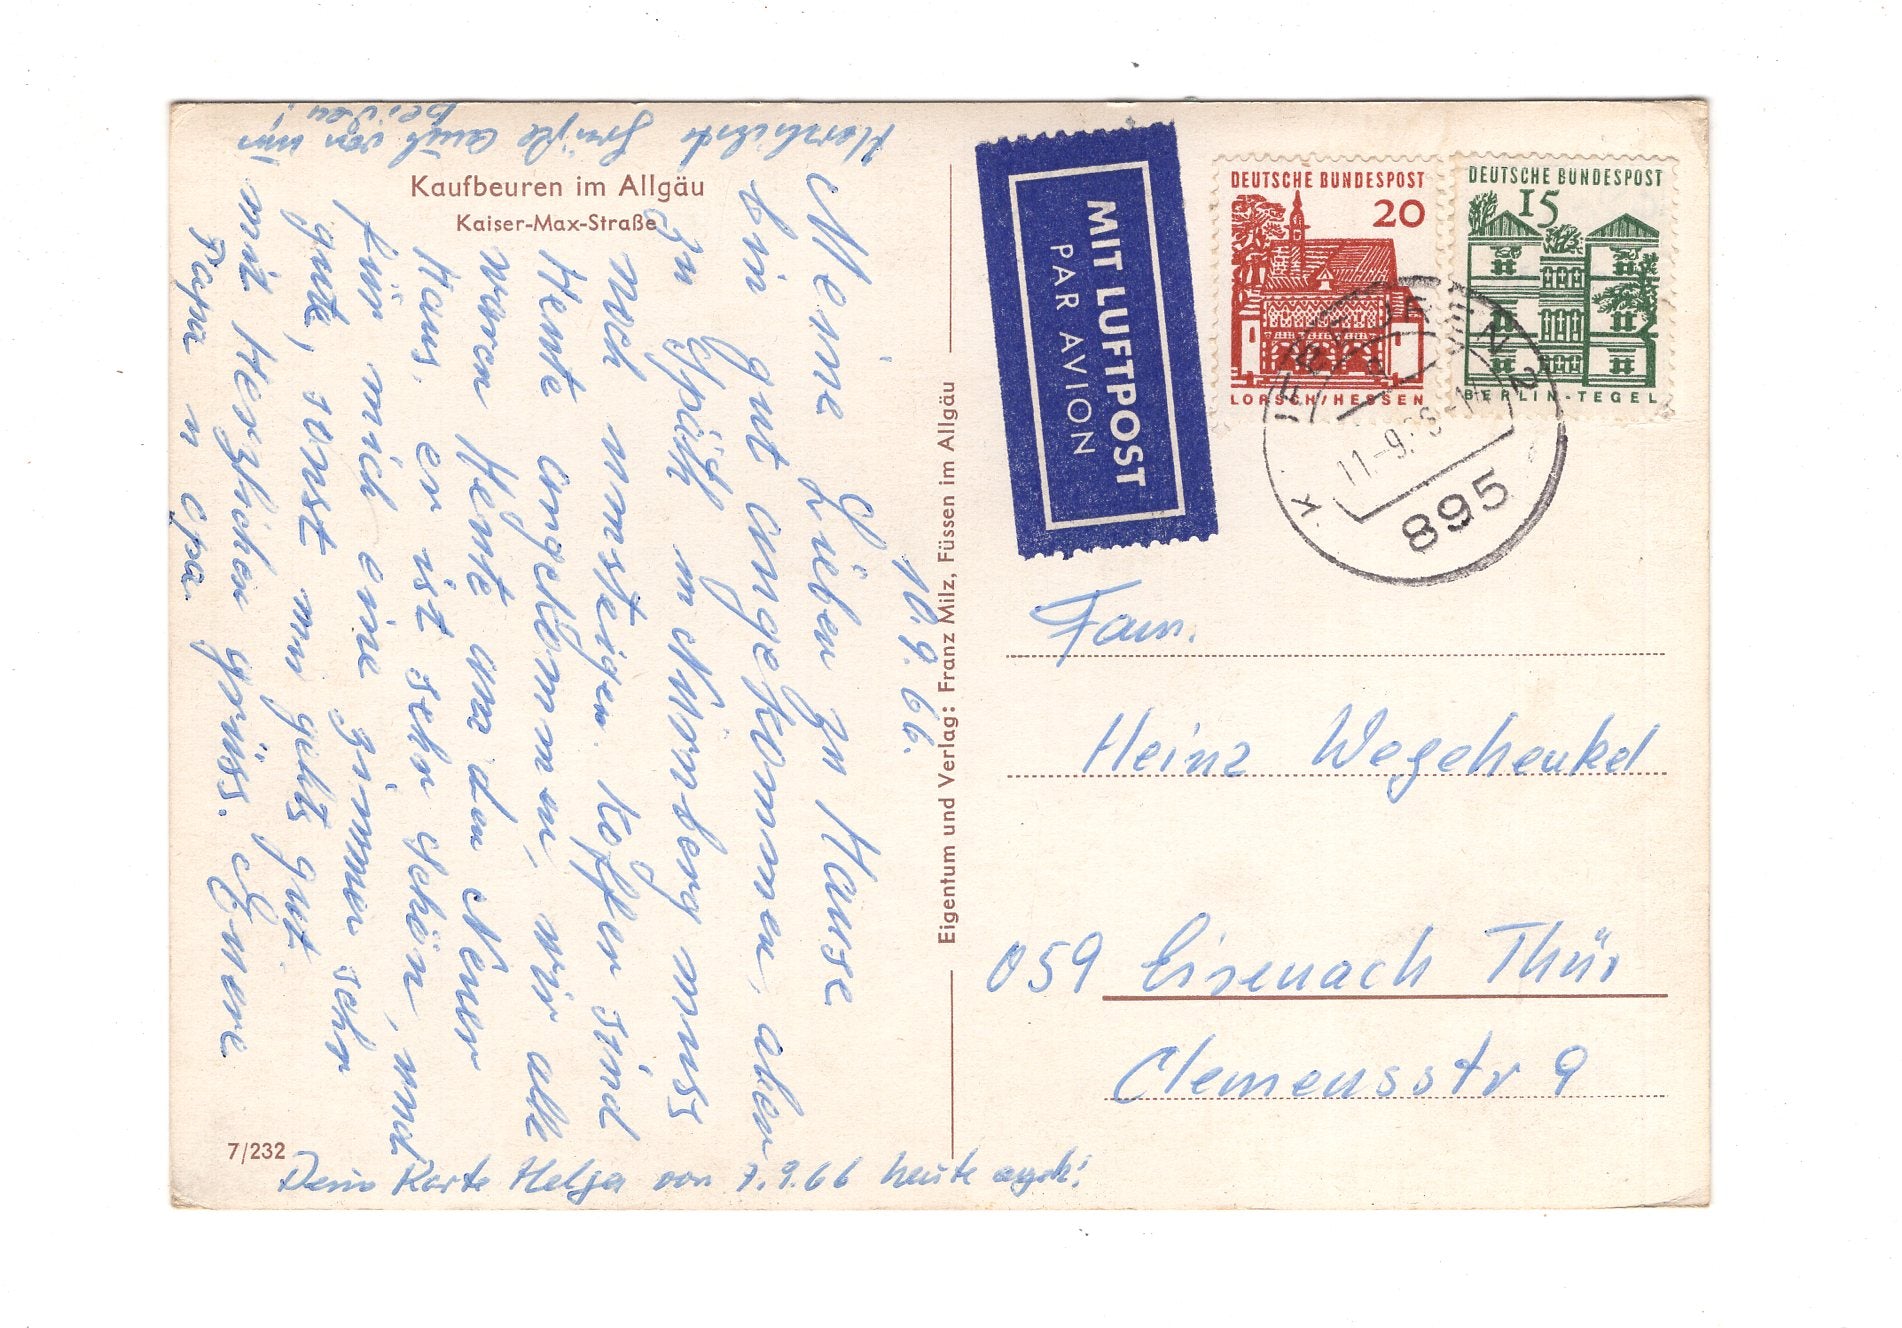 Kaufbeuren im Allgäu
Kaiser-Max-Straße
10.9.66.
Meine Lieben zu Hause
bin gut angekommen, aber
zu Spät in Nürnberg muss
noch umsteigen. Koffer sind
Heute angekommen, wir alle
waren Heute an den Neuer
Haus. er ist sehr schön, und
für mich eine Zimmer sehr
gute, sonst mir gehts gut.
mit Herzlichen grüss. Euere
Papa u opa.
Herzlichste Grüße auch von uns
beiden!
Deine Karte Helga von 7.9.66 heute
7/232
Eigentum und Verlag: Franz Milz, Füssen im Allgäu
MIT LUFTPOST
PAR AVION
DEUTSCHE BUNDESPOST
20
LORSCH/HESSEN
DEUTSCHE BUNDESPOST
15
BERLIN-TEGEL
11.-9.
895
Fam.
Heinz Wegehenkel
059 Eisenach Thür
Clemensstr 9